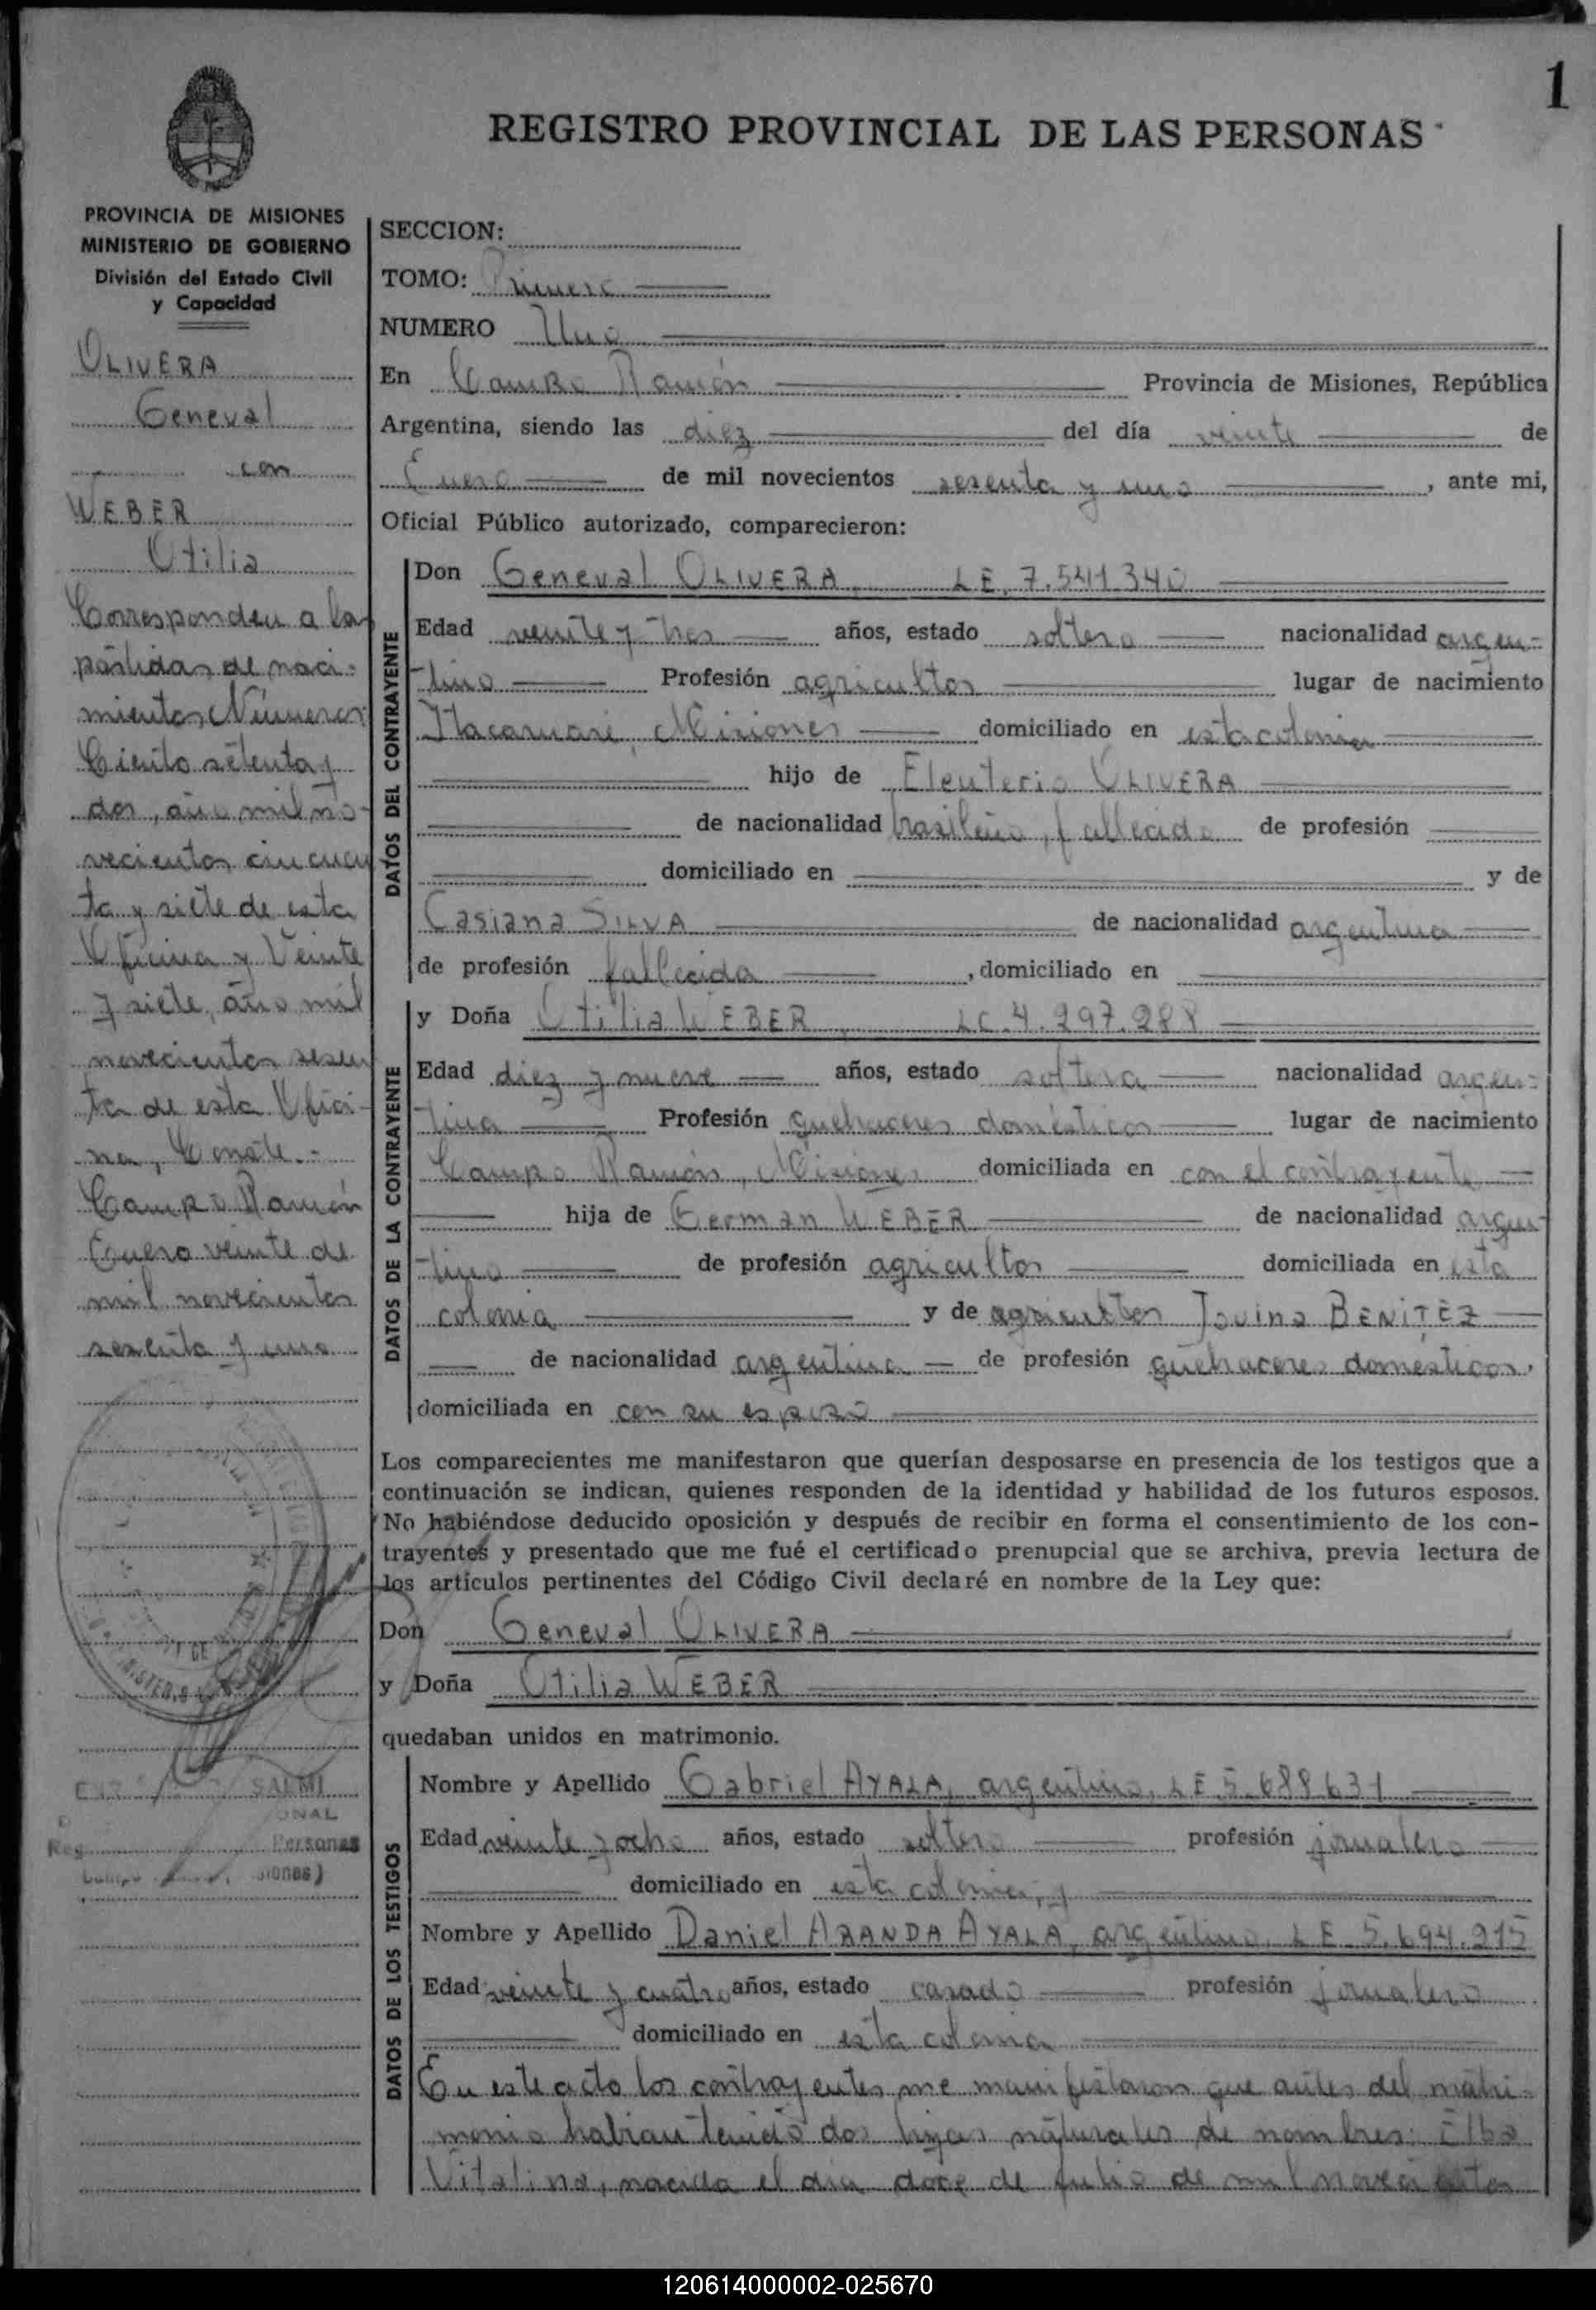 1
REGISTRO PROVINCIAL DE LAS PERSONAS
PROVINCIA DE MISIONES
MINISTERIO DE GOBIERNO
División del Estado Civil
y Capacidad
OLIVERA
Geneval
con
WEBER
Otilia
Corresponden a las
partidas de naci-
mientos Números
Ciento setenta y
dos, año mil no-
vecientos cincuen
ta y siete de esta
Oficina y Veinte
y siete, año mil
novecientos sesen
ta de esta Ofici-
na, Conste.-
Campo Ramón
Enero veinte de
mil novecientos
sesenta y uno
SALMI
ONAL
Reg Personas
SECCION:
TOMO: Primero
NUMERO Uno
En Campo Ramón Provincia de Misiones, República
Argentina, siendo las diez del día veinte de
Enero de mil novecientos sesenta y uno, ante mi,
Oficial Público autorizado, comparecieron:
DATOS DEL CONTRAYENTE
Don Geneval OLIVERA, LE. 7.541.340
Edad veinte y tres años, estado soltero nacionalidad argen-
tino Profesión agricultor lugar de nacimiento
Itacaruaré, Misiones domiciliado en esta colonia
hijo de Eleuterio OLIVERA
de nacionalidad brasileño, fallecido de profesión
domiciliado en y de
Casiana SILVA de nacionalidad argentina
de profesión fallecida, domiciliado en
DATOS DE LA CONTRAYENTE
y Doña Otilia WEBER, LC. 4.297.288
Edad diez y nueve años, estado soltera nacionalidad argen-
tina Profesión quehaceres domésticos lugar de nacimiento
Campo Ramón, Misiones domiciliada en con el contrayente
hija de German WEBER de nacionalidad argen-
tino de profesión agricultor domiciliada en esta
colonia y de agricultor Jovina BENITEZ
de nacionalidad argentina de profesión quehaceres domésticos,
domiciliada en con su esposo
Los comparecientes me manifestaron que querían desposarse en presencia de los testigos que a
continuación se indican, quienes responden de la identidad y habilidad de los futuros esposos.
No habiéndose deducido oposición y después de recibir en forma el consentimiento de los con-
trayentes y presentado que me fué el certificado prenupcial que se archiva, previa lectura de
los artículos pertinentes del Código Civil declaré en nombre de la Ley que:
Don Geneval OLIVERA
y Doña Otilia WEBER
quedaban unidos en matrimonio.
DATOS DE LOS TESTIGOS
Nombre y Apellido Gabriel AYALA, argentino, LE 5.688631
Edad veinte y ocho años, estado soltero profesión jornalero
domiciliado en esta colonia, y
Nombre y Apellido Daniel ARANDA AYALA, argentino, LE 5.694.215
Edad veinte y cuatro años, estado casado profesión jornalero
domiciliado en esta colonia
En este acto los contrayentes me manifestaron que antes del matri-
monio habian tenido dos hijas naturales de nombres: Elba
Vitalina, nacida el día doce de Julio de mil novecientos
120614000002-025670